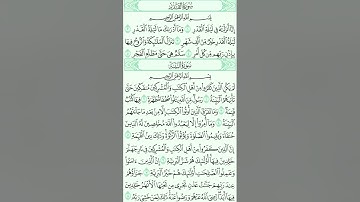 سُورَةُ القَدْرِ
بِسْمِ اللَّهِ الرَّحْمَٰنِ الرَّحِيمِ
إِنَّا أَنزَلْنَٰهُ فِي لَيْلَةِ الْقَدْرِ ١ وَمَا أَدْرَىٰكَ مَا لَيْلَةُ الْقَدْرِ ٢
لَيْلَةُ الْقَدْرِ خَيْرٌ مِّنْ أَلْفِ شَهْرٍ ٣ تَنَزَّلُ الْمَلَٰٓئِكَةُ وَالرُّوحُ فِيهَا
بِإِذْنِ رَبِّهِم مِّن كُلِّ أَمْرٍ ٤ سَلَٰمٌ هِيَ حَتَّىٰ مَطْلَعِ الْفَجْرِ ٥
سُورَةُ البَيِّنَةِ
بِسْمِ اللَّهِ الرَّحْمَٰنِ الرَّحِيمِ
لَمْ يَكُنِ الَّذِينَ كَفَرُوا مِنْ أَهْلِ الْكِتَٰبِ وَالْمُشْرِكِينَ مُنفَكِّينَ حَتَّىٰ
تَأْتِيَهُمُ الْبَيِّنَةُ ١ رَسُولٌ مِّنَ اللَّهِ يَتْلُوا صُحُفًا مُّطَهَّرَةً ٢ فِيهَا
كُتُبٌ قَيِّمَةٌ ٣ وَمَا تَفَرَّقَ الَّذِينَ أُوتُوا الْكِتَٰبَ إِلَّا مِن بَعْدِ مَا جَاءَتْهُمُ
الْبَيِّنَةُ ٤ وَمَا أُمِرُوا إِلَّا لِيَعْبُدُوا اللَّهَ مُخْلِصِينَ لَهُ الدِّينَ
حُنَفَاءَ وَيُقِيمُوا الصَّلَوٰةَ وَيُؤْتُوا الزَّكَوٰةَ وَذَٰلِكَ دِينُ الْقَيِّمَةِ ٥
إِنَّ الَّذِينَ كَفَرُوا مِنْ أَهْلِ الْكِتَٰبِ وَالْمُشْرِكِينَ فِي نَارِ جَهَنَّمَ
خَٰلِدِينَ فِيهَا أُولَٰئِكَ هُمْ شَرُّ الْبَرِيَّةِ ٦ إِنَّ الَّذِينَ ءَامَنُوا
وَعَمِلُوا الصَّٰلِحَٰتِ أُولَٰئِكَ هُمْ خَيْرُ الْبَرِيَّةِ ٧ جَزَاؤُهُمْ
عِندَ رَبِّهِمْ جَنَّٰتُ عَدْنٍ تَجْرِي مِن تَحْتِهَا الْأَنْهَٰرُ خَٰلِدِينَ
فِيهَا أَبَدًا رَّضِيَ اللَّهُ عَنْهُمْ وَرَضُوا عَنْهُ ذَٰلِكَ لِمَنْ خَشِيَ رَبَّهُ ٨